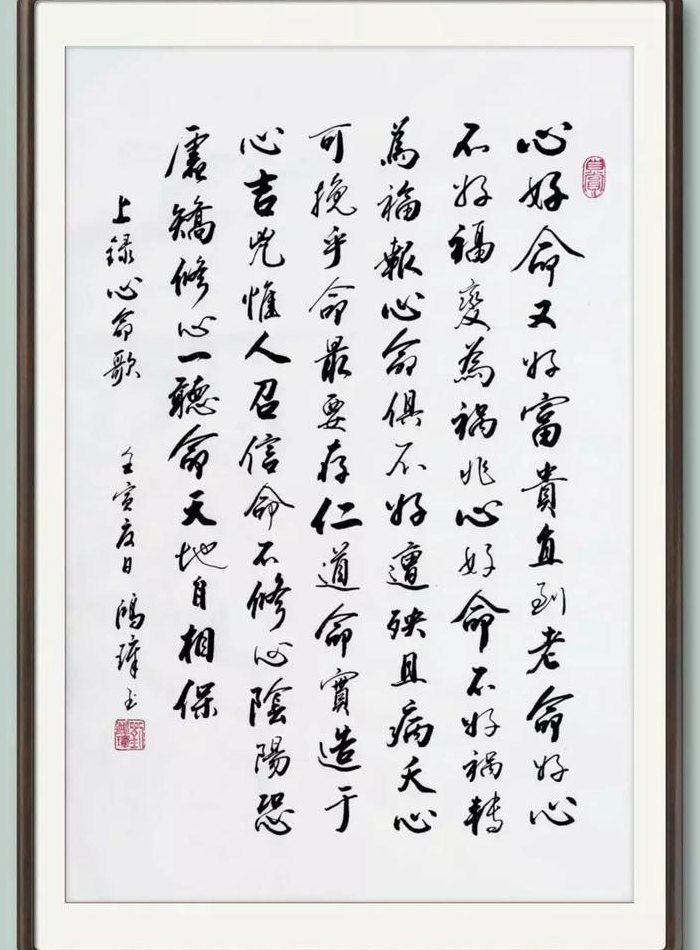 心好命又好富貴直到老命好心
不好福變為禍兆心好命不好禍轉
為福報心命俱不好遭殃且病夭心
可挽乎命最要存仁道命實造于
心吉兇惟人召信命不修心陰陽恐
虛矯修心一聽命天地自相保
上録心命歌
壬寅夏日鴻瑋书